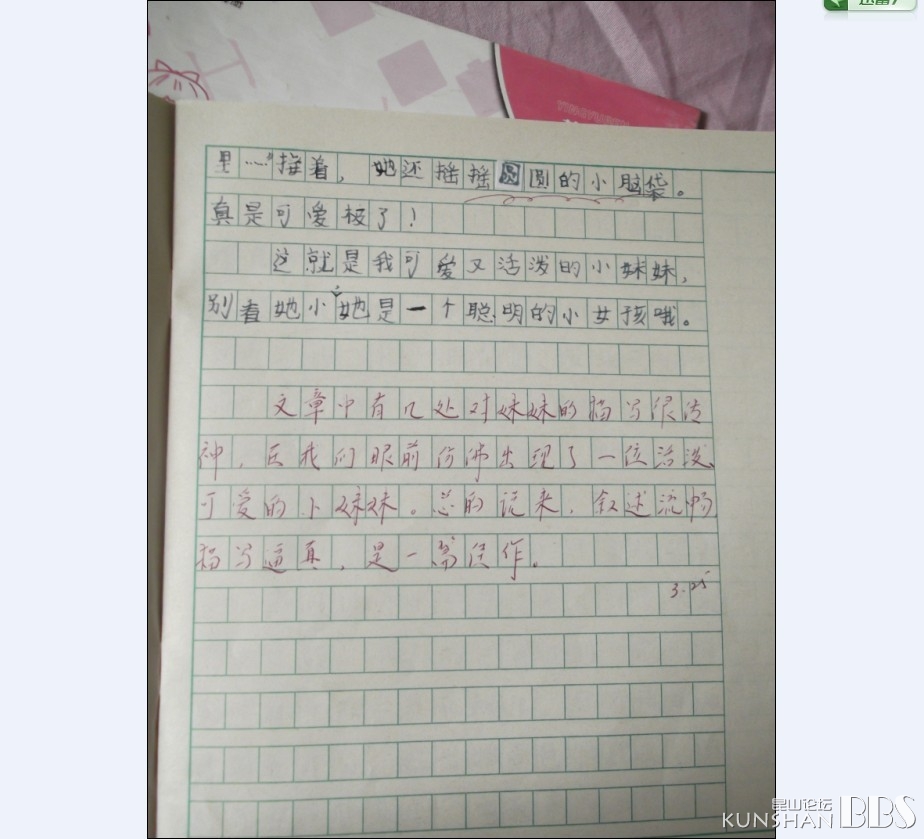 里……"摇着，她还摇摇圆圆的小脑袋。
真是可爱极了！
这就是我可爱又活泼的小妹妹，
别看她小她是一个聪明的小女孩哦。
文章中有几处对妹妹的描写很传
神，在我们眼前仿佛出现了一位活泼、
可爱的小妹妹。总的说来，叙述流畅
描写逼真，是一篇佳作。
3.25
昆山论坛
KUNSHAN BBS